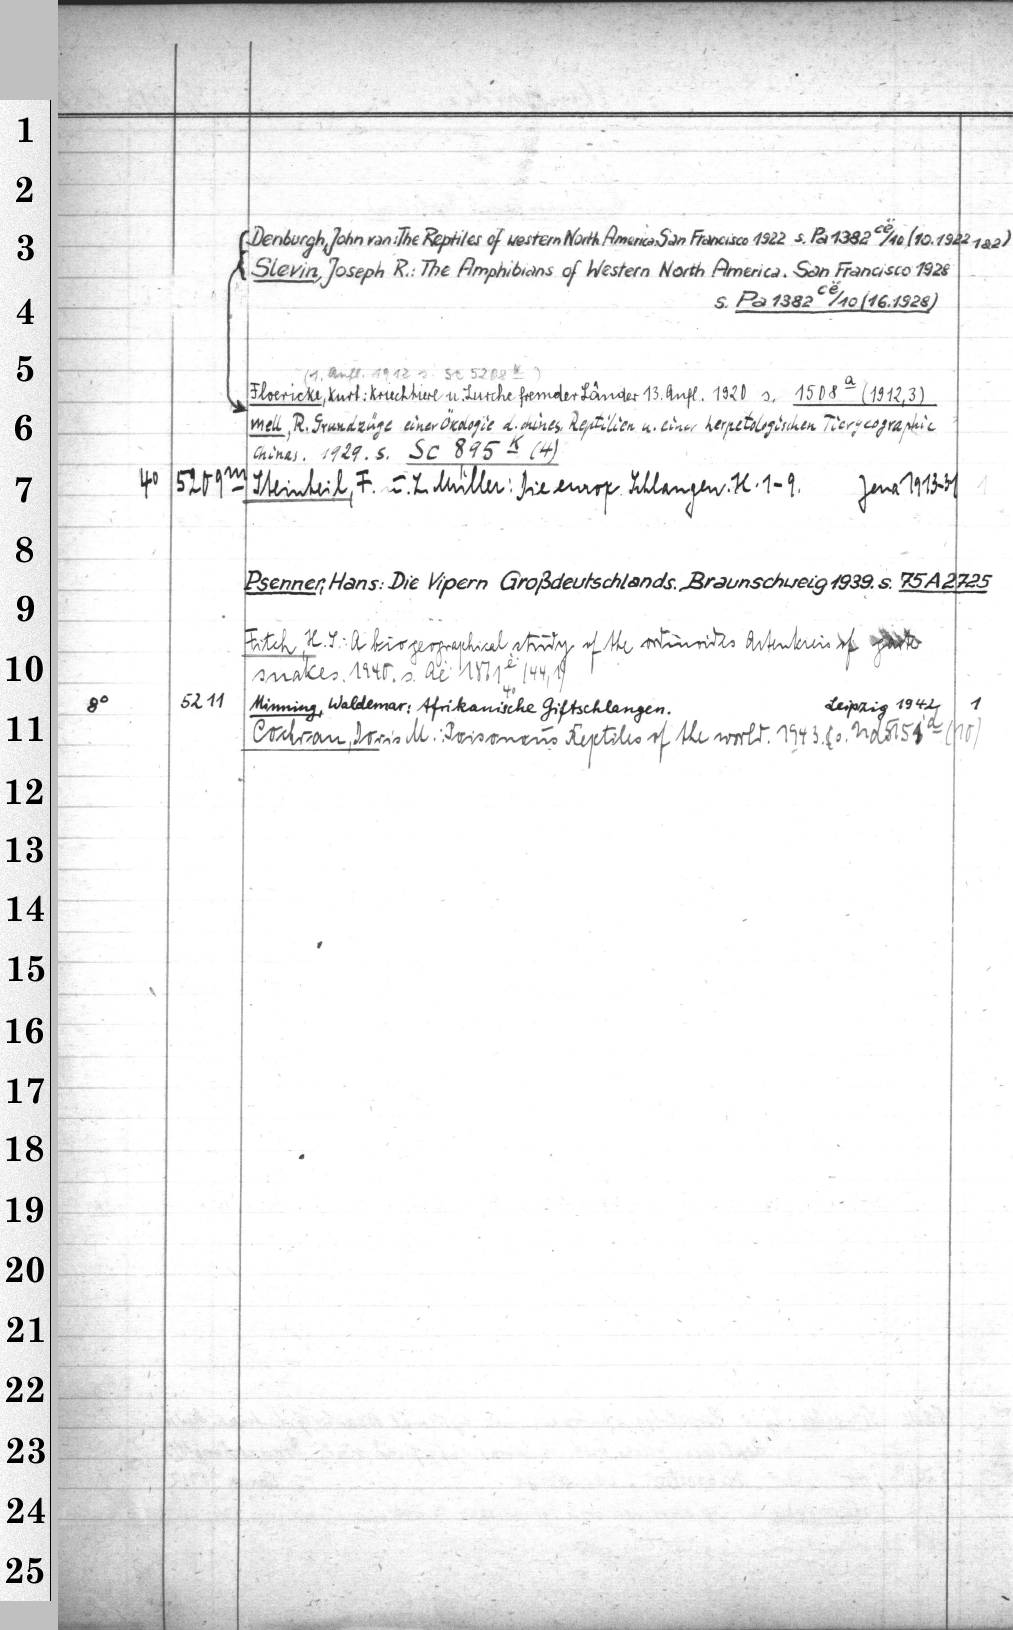 1
2
3
4
5
6
7
8
9
10
11
12
13
14
15
16
17
18
19
20
21
22
23
24
25
Denburgh, John van: The Reptiles of western North America. San Francisco 1922 s. Pa 1382 cë/10 (10.1922 1&2)
Slevin, Joseph R.: The Amphibians of Western North America. San Francisco 1928
s. Pa 1382 cë/10 (16.1928)
(1. Aufl. 1912 s. Sc 5208 K)
Floericke, Kurt: Kriechtiere u. Lurche fremder Länder 13. Aufl. 1920 s. 1508 a (1912,3)
Mell, R. Grundzüge einer Ökologie d. chines. Reptilien u. einer herpetologischen Tiergeographie
Chinas. 1929. s. Sc 895 K (4)
4° 5209 m Steinheil, F. u. L. Müller: Die europ. Schlangen. H. 1-9. Jena 1913-31 1
Psenner, Hans: Die Vipern Großdeutschlands. Braunschweig 1939. s. 75 A 2725
Fitch, H. S.: A biogeographical study of the ordinoides Artenkreis of garter
snakes. 1940. s. 1871 (44,1)
8° 5211 Minning, Waldemar: Afrikanische Giftschlangen. Leipzig 1942 1
Cochran, Doris M.: Poisonous Reptiles of the world. 1943. s. (10)